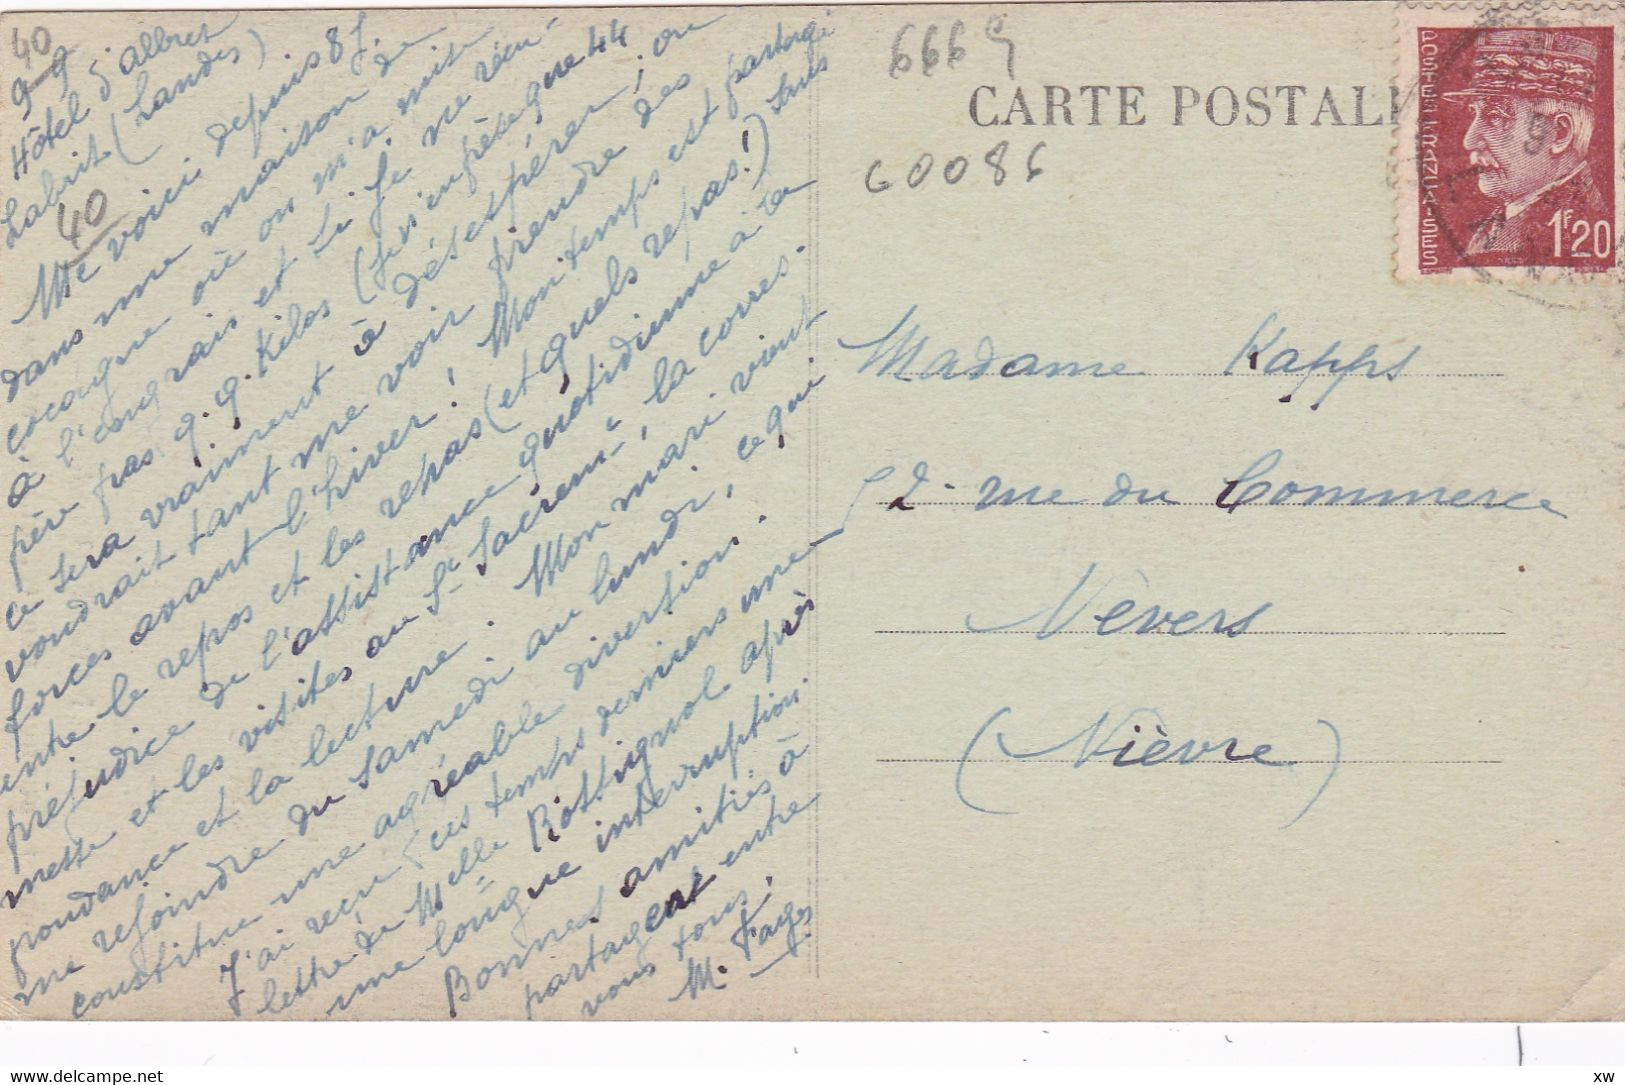 40
9-9
Hôtel d'albret
Labrit (Landes)
40
Me voici depuis 8 j.
dans une maison de
cocagne où on m'a mise
à l'engrais et si je ne récu-
père pas q.q. kilos (je n'en pèse que 44
ce sera vraiment à désespérer ; on
voudrait tant me voir prendre des
forces avant l'hiver ! Mon temps est partagé
entre le repos et les repas (et quels repas !) sans
préjudice de l'assistance quotidienne à la
messe et les visites au St Sacremt, la corres-
pondance et la lecture. Mon mari vient
me rejoindre du samedi au lundi, ce qui
constitue une agréable diversion.
J'ai reçu ces temps derniers une
lettre de Melle Rossignol après
une longue interruption.
Bonnes amitiés à
partager entre
vous tous.
M. Farges
6669
CARTE POSTAL
G0086
POSTES FRANÇAISES
1F20
Madame Kapps
52 rue du Commerce
Nevers
(Nièvre)
delcampe.net
xw